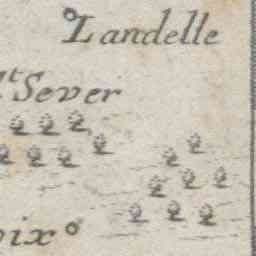 Landelle
St Sever
oix